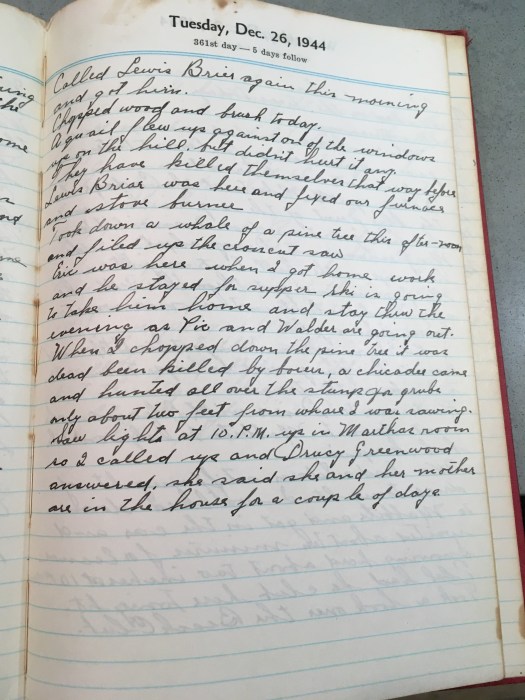 Tuesday, Dec. 26, 1944
361st day — 5 days follow
Called Lewis Brier again this morning
and got him.
Chopped wood and brush today.
A quail flew up against on of the windows
up on the hill, but didn't hurt it any.
They have killed themselves that way before
Lewis Briar was here and fixed our furnace
and stove burner
Took down a whale of a pine tree this after-noon
and filed up the crosscut saw
Eric was here when I got home work
and he stayed for supper Ski is going
to take him home and stay thru the
evening as Vic and Walder are going out.
When I chopped down the pine tree it was
dead been killed by borers, a chicadee came
and hunted all over the stump for grubs
only about two feet from whare I was sawing.
Saw lights at 10.P.M. up in Marthas room
so I called up and Drucy Greenwood
answered, she said she and her mother
are in the house for a couple of days.